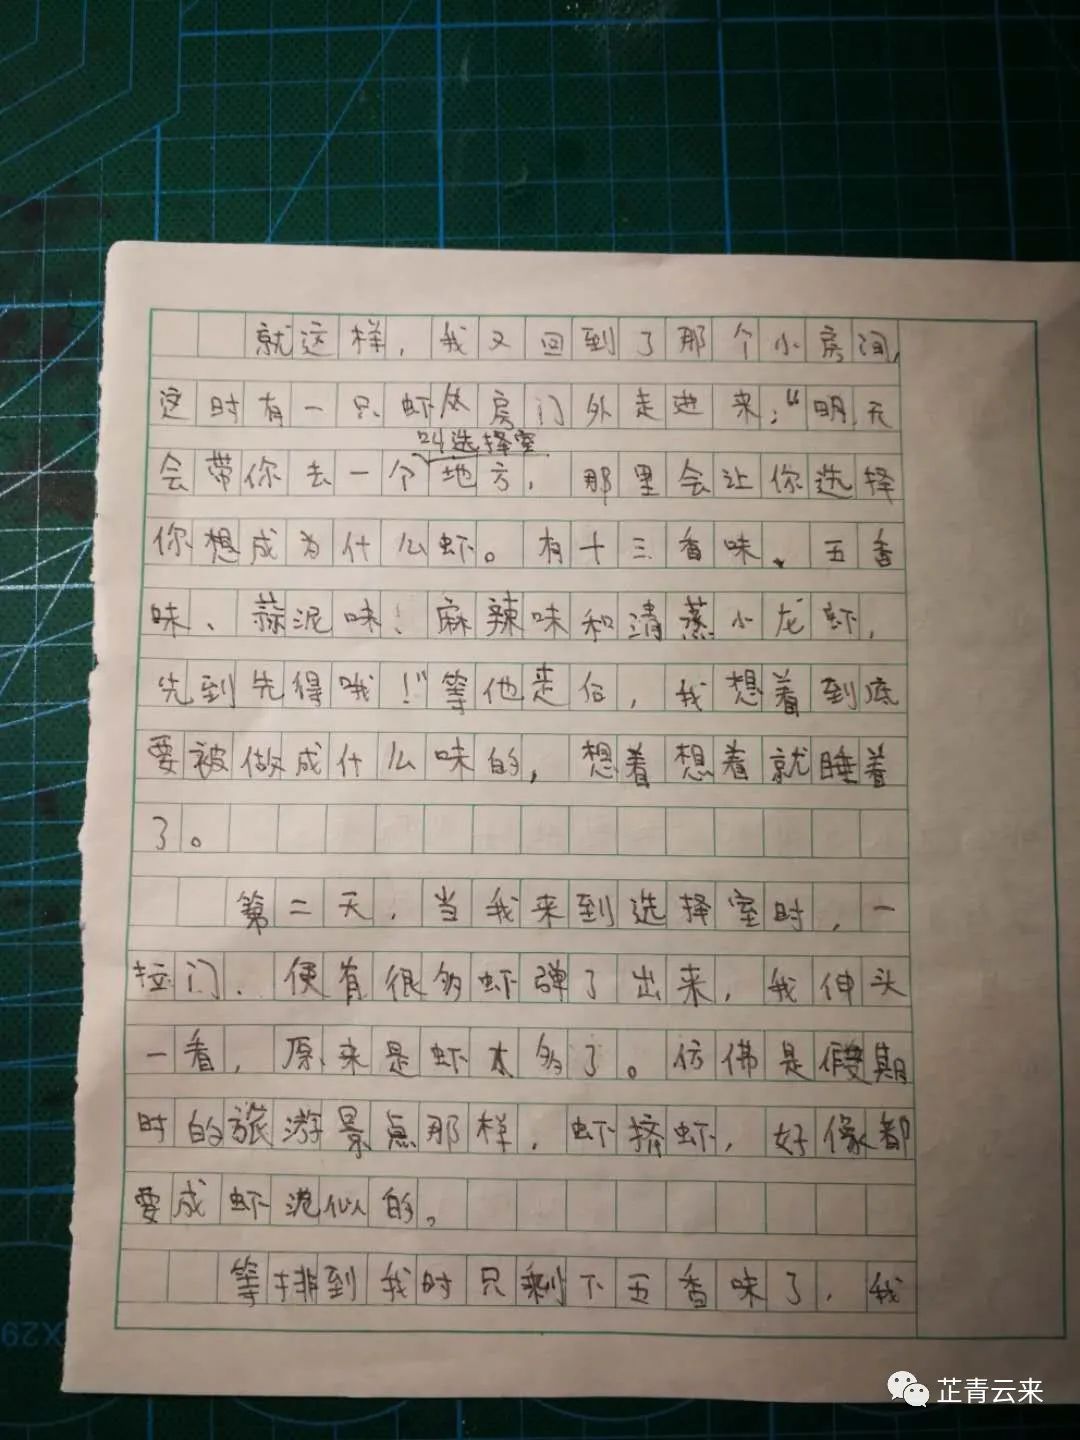 就这样，我又回到了那个小房间，
这时有一只虾从房门外走进来："明天
叫选择室
会带你去一个地方，那里会让你选择
你想成为什么虾。有十三香味、五香
味、蒜泥味、麻辣味和清蒸小龙虾，
先到先得哦！"等他走后，我想着到底
要被做成什么味的，想着想着就睡着
了。
第二天，当我来到选择室时，一
拉门，便有很多虾弹了出来，我伸头
一看，原来是虾太多了。仿佛是假期
时的旅游景点那样，虾挤虾，好像都
要成虾泥似的。
等排到我时只剩下五香味了，我
芷青云来